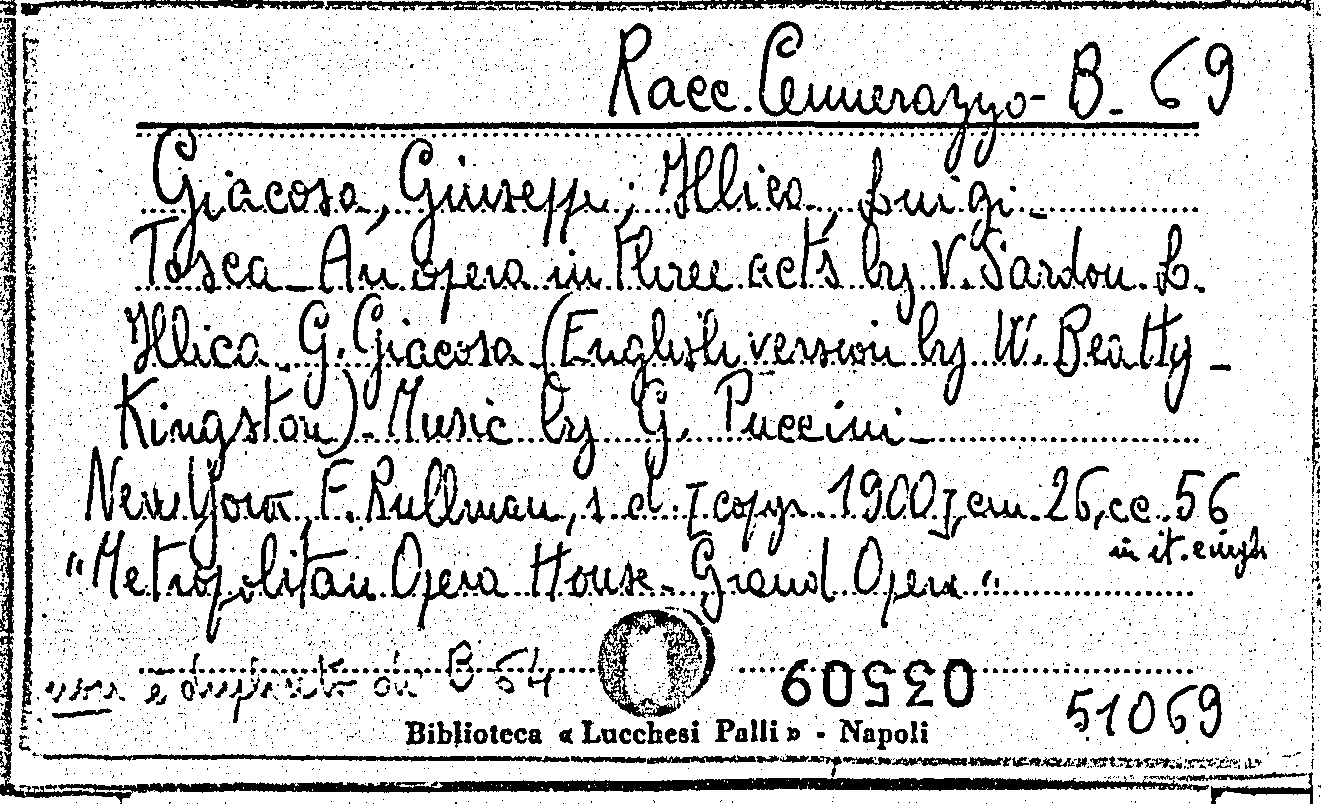 Racc. Cennerazzo - B. 69
Giacosa, Giuseppe; Illica, Luigi -
Tosca - An opera in three acts by V. Sardou. L.
Illica. G. Giacosa (English version by W. Beatty -
Kingston) - Music by G. Puccini -
New York, F. Rullman, s. d. [copyr. 1900], cm. 26, cc. 56
in it. e ingl.
"Metropolitan Opera House - Grand Opera"
non è duplicato di B 64
03509
51069
Biblioteca « Lucchesi Palli » - Napoli